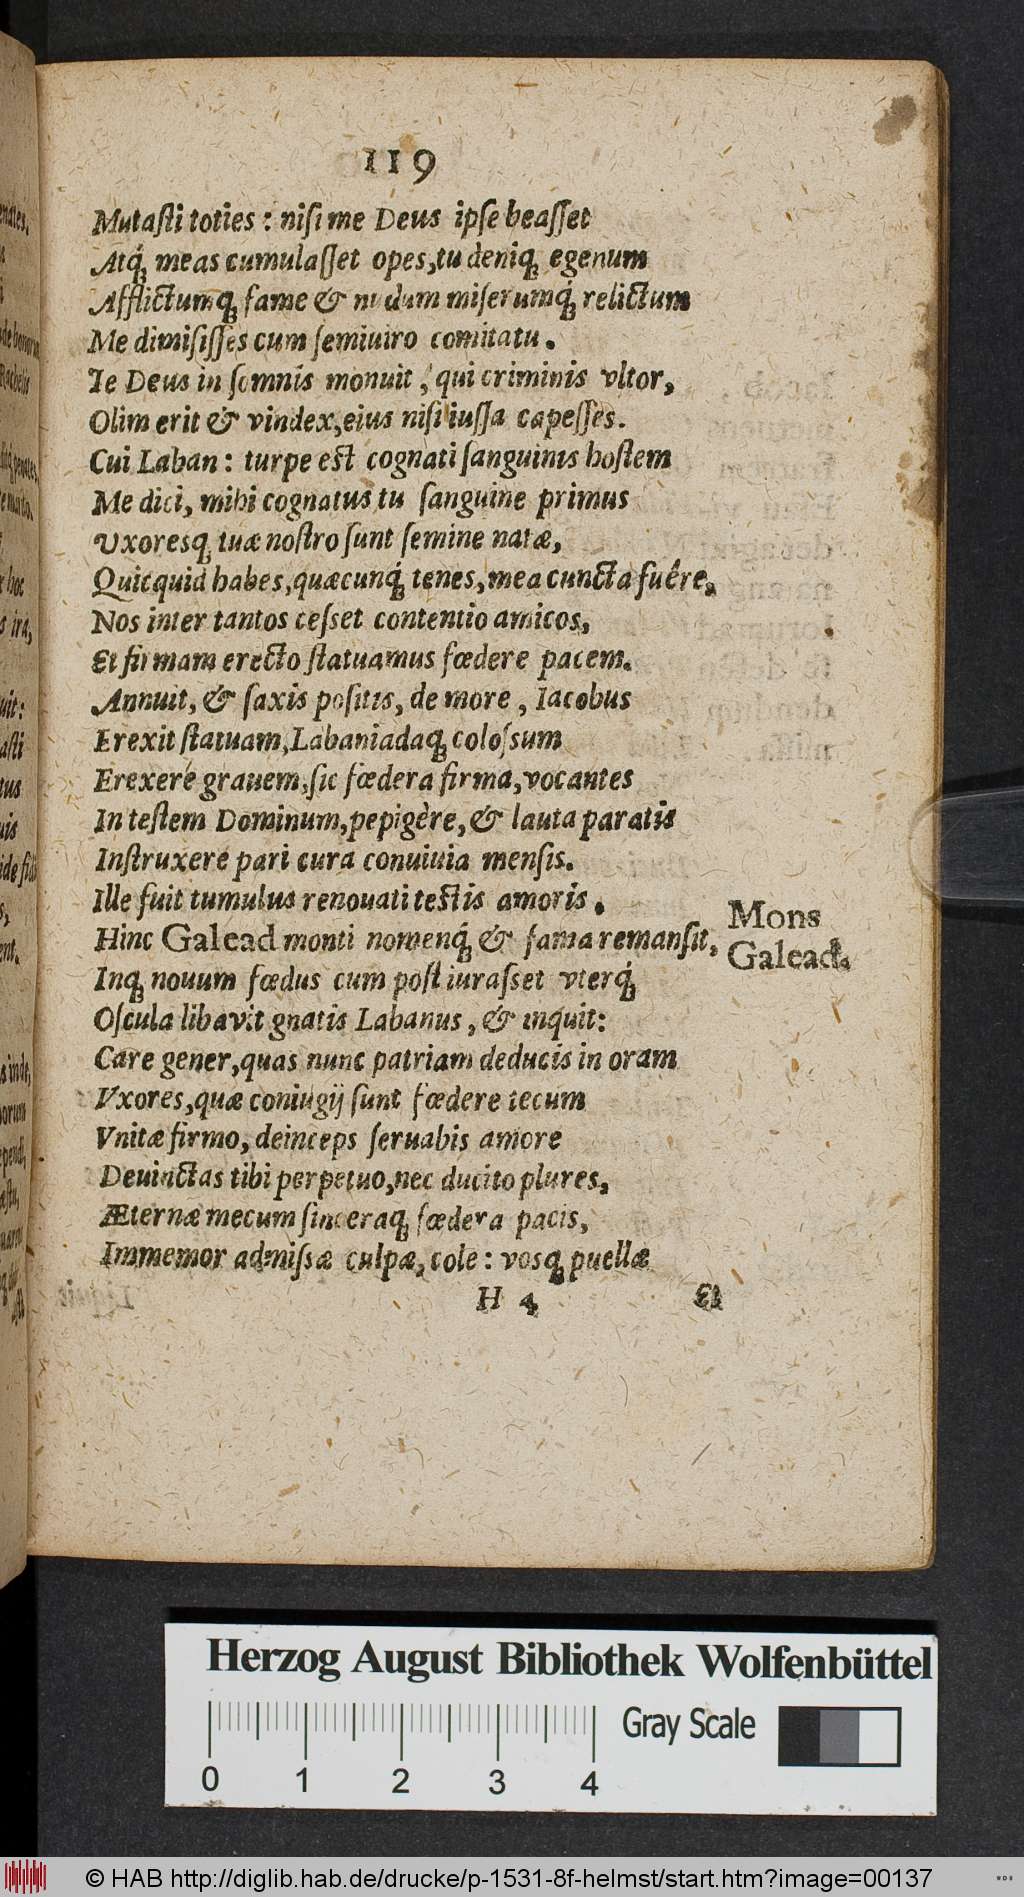 119
Mutaſti toties : niſi me Deus ipſe beaſſet
Atq́; meas cumulaſſet opes, tu deniq; egenum
Afflictumq; fame & nudum miſerumq́; relictum
Me dimiſiſſes cum ſemiuiro comitatu.
Te Deus in ſomnis monuit, qui criminis vltor,
Olim erit & vindex, eius niſi iuſſa capeſſes.
Cui Laban : turpe eſt cognati ſanguinis hoſtem
Me dici, mihi cognatus tu ſanguine primus
Vxoresq; tuæ noſtro ſunt ſemine natæ,
Quicquid habes, quæcunq́; tenes, mea cuncta fuêre,
Nos inter tantos ceſset contentio amicos,
Et firmam erecto ſtatuamus fœdere pacem.
Annuit, & ſaxis poſitis, de more, Iacobus
Erexit ſtatuam, Labaniadaq; coloſsum
Erexere grauem, ſic fœdera firma, vocantes
In teſtem Dominum, pepigère, & lauta paratis
Inſtruxere pari cura conuiuia menſis.
Ille fuit tumulus renouati teſtis amoris.
Hinc Galead monti nomenq́; & fama remanſit,
Mons
Galead.
Inq; nouum fœdus cum poſt iuraſset vterq́;
Oſcula libavit gnatis Labanus, & inquit:
Care gener, quas nunc patriam deducis in oram
Vxores, quæ coniugij ſunt fœdere tecum
Vnitæ firmo, deinceps ſeruabis amore
Deuinctas tibi perpetuo, nec ducito plures,
Æternæ mecum ſinceraq; fœdera pacis,
Immemor admiſsæ culpæ, cole : vosq; puellæ
H 4 Et
Herzog August Bibliothek Wolfenbüttel
Gray Scale
0 1 2 3 4
© HAB http://diglib.hab.de/drucke/p-1531-8f-helmst/start.htm?image=00137